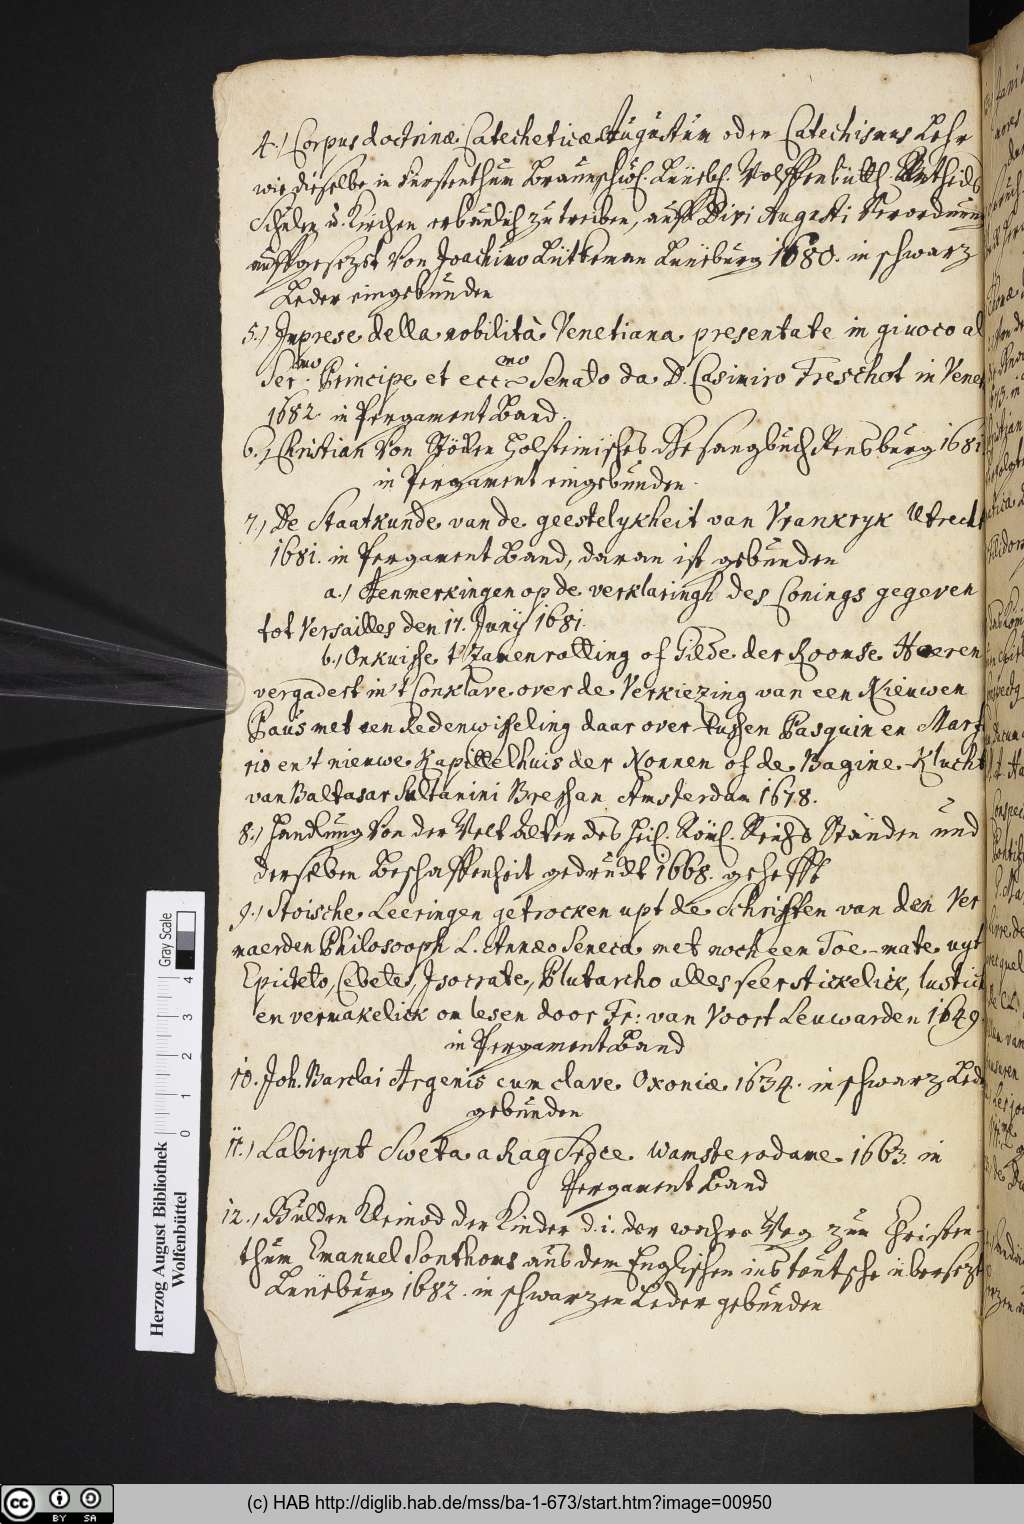 4.) Corpus doctrinæ Catecheticæ Augustum oder Catechismus Lehr
wie dieselbe in Furstenthum Braunschw. Lüneb. Wolffenbüttl.
Schulen u. Kirchen erbaulich zutreiben, auff Divi Augusti Verordnung
auffgesetzt Von Joachimo Lütkeman Lüneburg 1680. in schwarz
Leder eingebunden
5.) Imprese della nobilità Venetiana presentate in giuoco al
Ser.mo Principe et ecc.mo Senato da D. Casimiro Freschot in Venet
1682 in Pergament Band.
6.) Christian Von Stöken Holsteinisches Gesangbuch Rensburg 1681
in Pergament eingebunden.
7.) De Staatkunde van de geestelykheit van Vrankryk Utrecht
1681. in Pergament Band, daran ist gebunden
a.) Aenmerkingen op de verklaringh des Conings gegeven
tot Versailles den 17. Junÿ 1681.
b.) Onkuisse t'Zamenrolling of Gilde der Roomse Heeren
vergadert in't Conklave over de Verkiezing van een Nieuwen
Paus met een Redenwisseling daar over tussen Pasquin en Marf
rio en't nieuwe Kapittelhuis der Nonnen of de Bagine-Klucht
van Baltasar Sultanini Bressan Amsterdam 1678.
8.) Handlung Von der Welt Alter des Heil. Röml. Reichs Ständen und
derselben Beschaffenheit gedruckt 1668. gehefft
9.) Stoische Leeringen getrocken uyt de Schriften van den Ver
maerden Philosooph L. Annæo Seneca met noch een Toe-mate uyt
Epicteto, Cebete, Isocrate, Plutarcho alles seer stickelick, lustich
en vermakelick om lesen door Fr: van Voort Leuwarden 1649.
in Pergament Band
10. Joh. Barclai Argenis cum clave Oxoniæ 1634. in schwarz Led
gebunden
11.) Labirynt Sweta a Rag Srdce Wamsterodame 1663. in
Pergament Band
12.) Gülden Kleinod der Kinder d.i. der wahre Weg zum Christen-
thum Emanuel Sonthoms aus dem Englischen ins teutsche übersetzt
Lüneburg 1682. in schwarzen Leder gebunden
Herzog August Bibliothek
Wolfenbüttel
0 1 2 3 4
Gray Scale
cc BY SA
(c) HAB http://diglib.hab.de/mss/ba-1-673/start.htm?image=00950